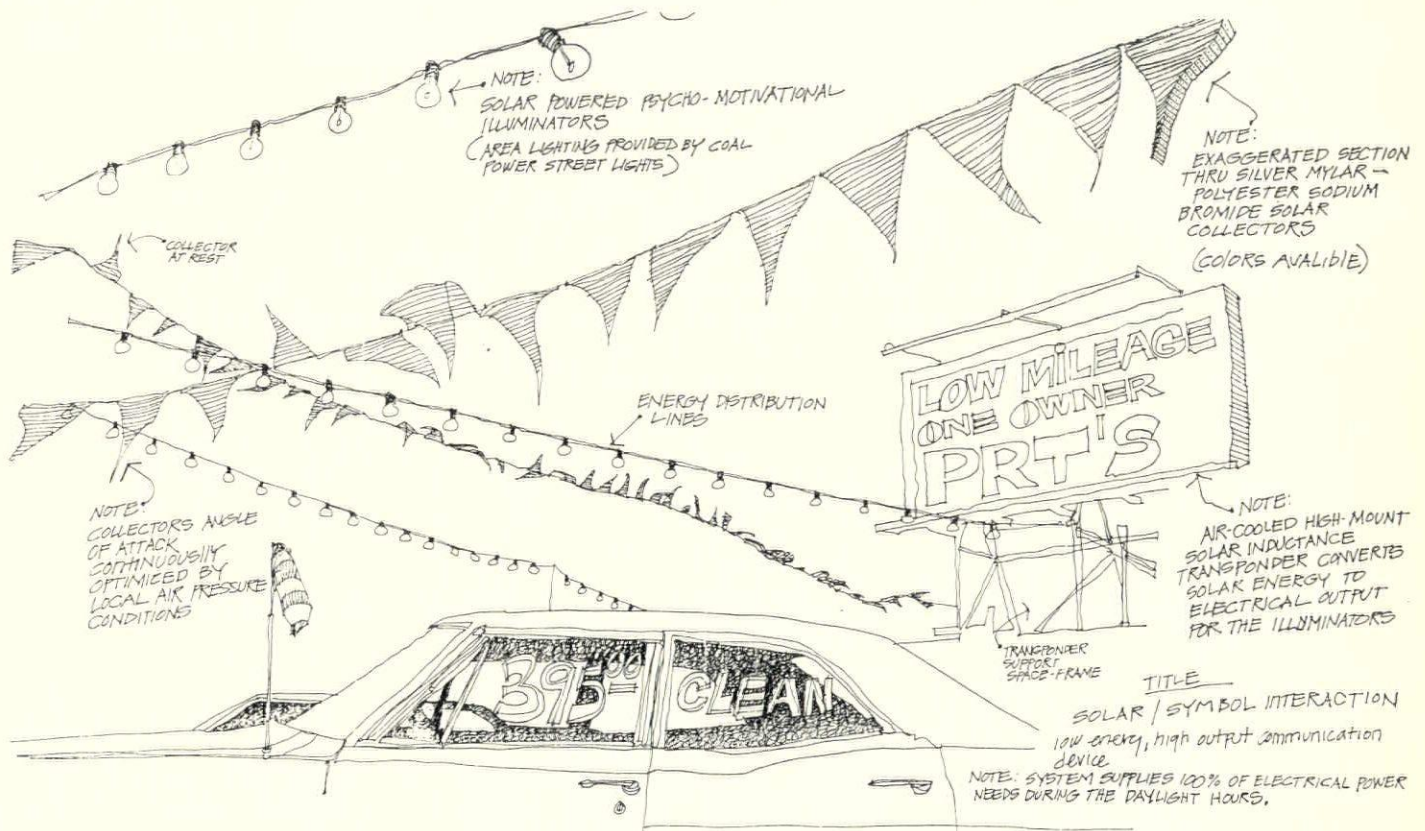 NOTE:
SOLAR POWERED PSYCHO-MOTIVATIONAL
ILLUMINATORS
(AREA LIGHTING PROVIDED BY COAL
POWER STREET LIGHTS)
NOTE:
EXAGGERATED SECTION
THRU SILVER MYLAR —
POLYESTER SODIUM
BROMIDE SOLAR
COLLECTORS
(COLORS AVALIBLE)
COLLECTOR
AT REST
LOW MILEAGE
ONE OWNER
PRT'S
ENERGY DISTRIBUTION
LINES
NOTE:
COLLECTORS ANGLE
OF ATTACK
CONTINUOUSLY
OPTIMIZED BY
LOCAL AIR PRESSURE
CONDITIONS
NOTE:
AIR-COOLED HIGH-MOUNT
SOLAR INDUCTANCE
TRANSPONDER CONVERTS
SOLAR ENERGY TO
ELECTRICAL OUTPUT
FOR THE ILLUMINATORS
TRANSPONDER
SUPPORT
SPACE-FRAME
395.00 CLEAN
TITLE
SOLAR / SYMBOL INTERACTION
low energy, high output communication
device
NOTE: SYSTEM SUPPLIES 100% OF ELECTRICAL POWER
NEEDS DURING THE DAYLIGHT HOURS.